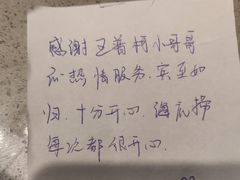 感谢王若柯小哥哥
的热情服务.宾至如
归.十分开心.海底捞
每次都很开心.